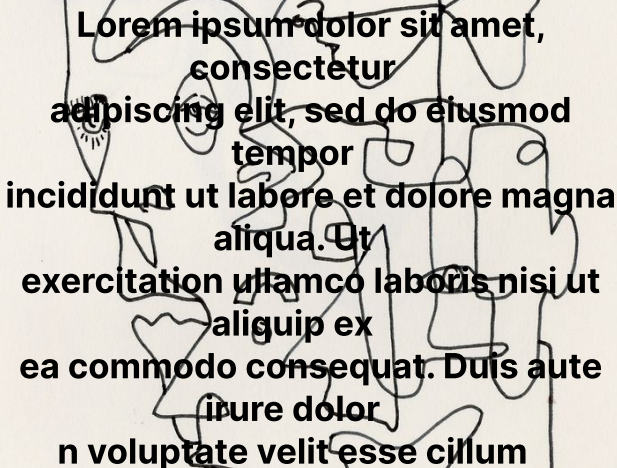 Lorem ipsum dolor sit amet,
consectetur
adipiscing elit, sed do eiusmod
tempor
incididunt ut labore et dolore magna
aliqua. Ut
exercitation ullamco laboris nisi ut
aliquip ex
ea commodo consequat. Duis aute
irure dolor
n voluptate velit esse cillum